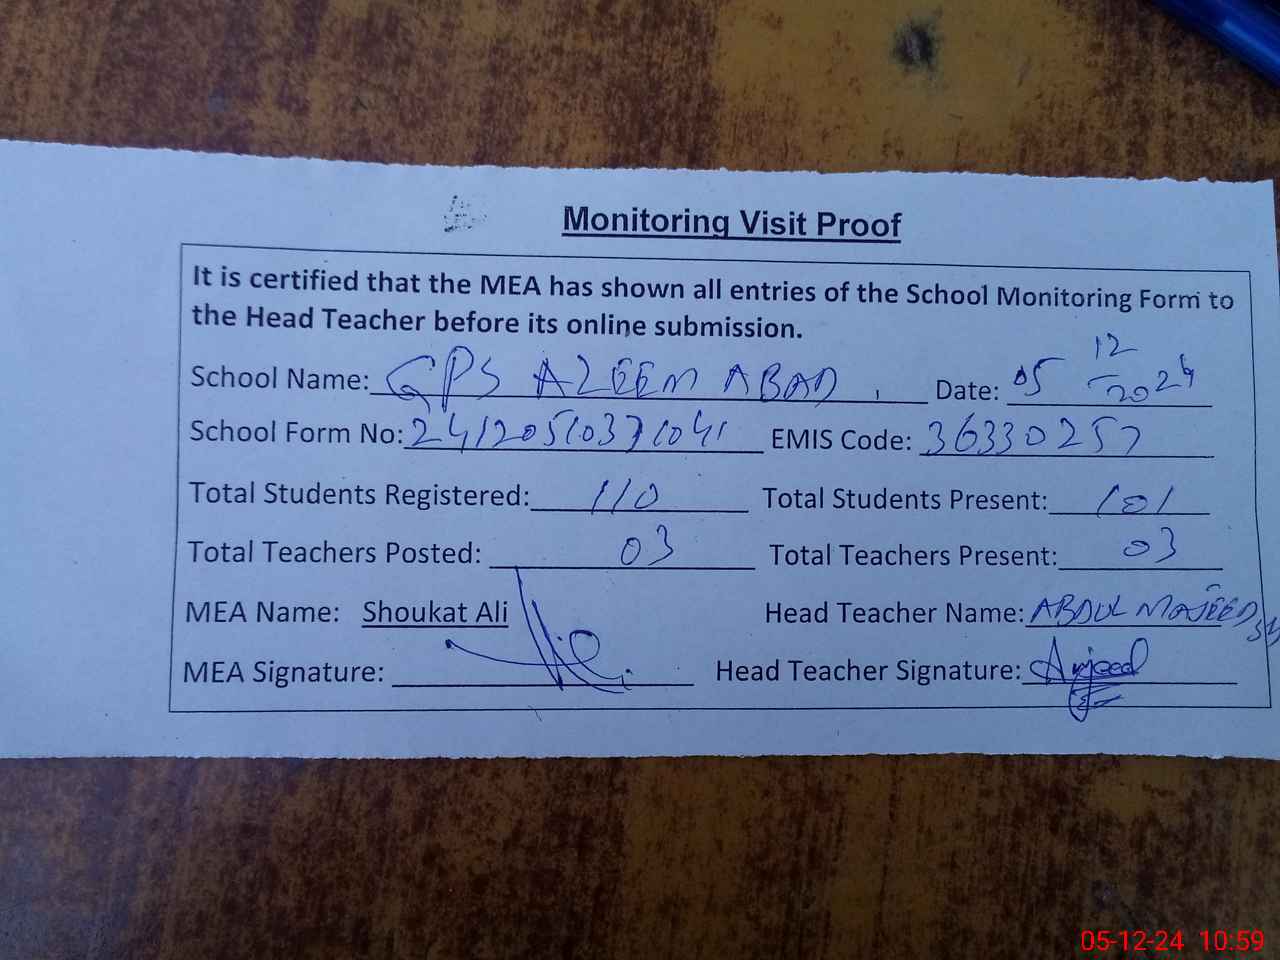 Monitoring Visit Proof
It is certified that the MEA has shown all entries of the School Monitoring Form to
the Head Teacher before its online submission.
School Name: GPS AZEEM ABAD Date: 05 12 2024
School Form No: 24120510371041 EMIS Code: 36330257
Total Students Registered: 110 Total Students Present: 101
Total Teachers Posted: 03 Total Teachers Present: 03
MEA Name: Shoukat Ali Head Teacher Name: ABDUL MAJEED
MEA Signature: Head Teacher Signature: Amjeed
05-12-24 10:59